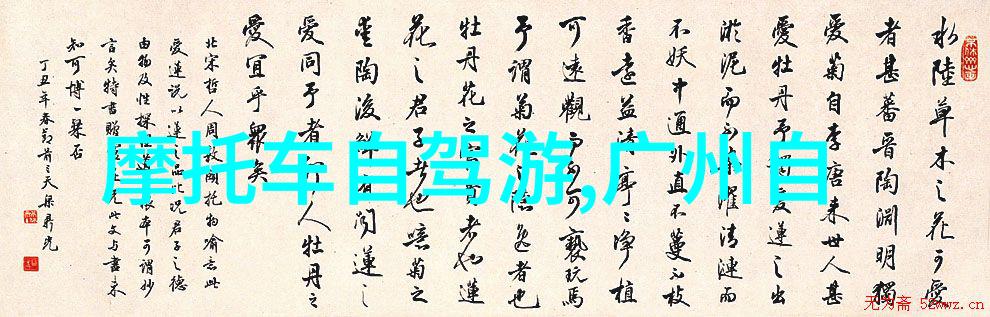 水陸草木之花可愛
者甚蕃晋陶淵明獨
愛菊自李唐来世人甚
愛牡丹予獨愛蓮之出
淤泥而不染濯清漣而
不妖中通外直不蔓不枝
香遠益清亭亭净植
可遠觀而不可褻玩焉
予謂菊花之隱逸者也
牡丹花之富貴者也蓮
花之君子者也噫菊之
愛陶後鮮有聞蓮之
愛同予者何人牡丹之
愛宜乎衆矣
北宋哲人周敦頤托物喻志此
愛蓮説以蓮之品比况君子之德
由物及性探
可謂妙
言矣特書贈
此文与書未
知可博一粲否
丁丑年春節前三天
摩托车自驾游,广州自
无为斋 52wwz.cn